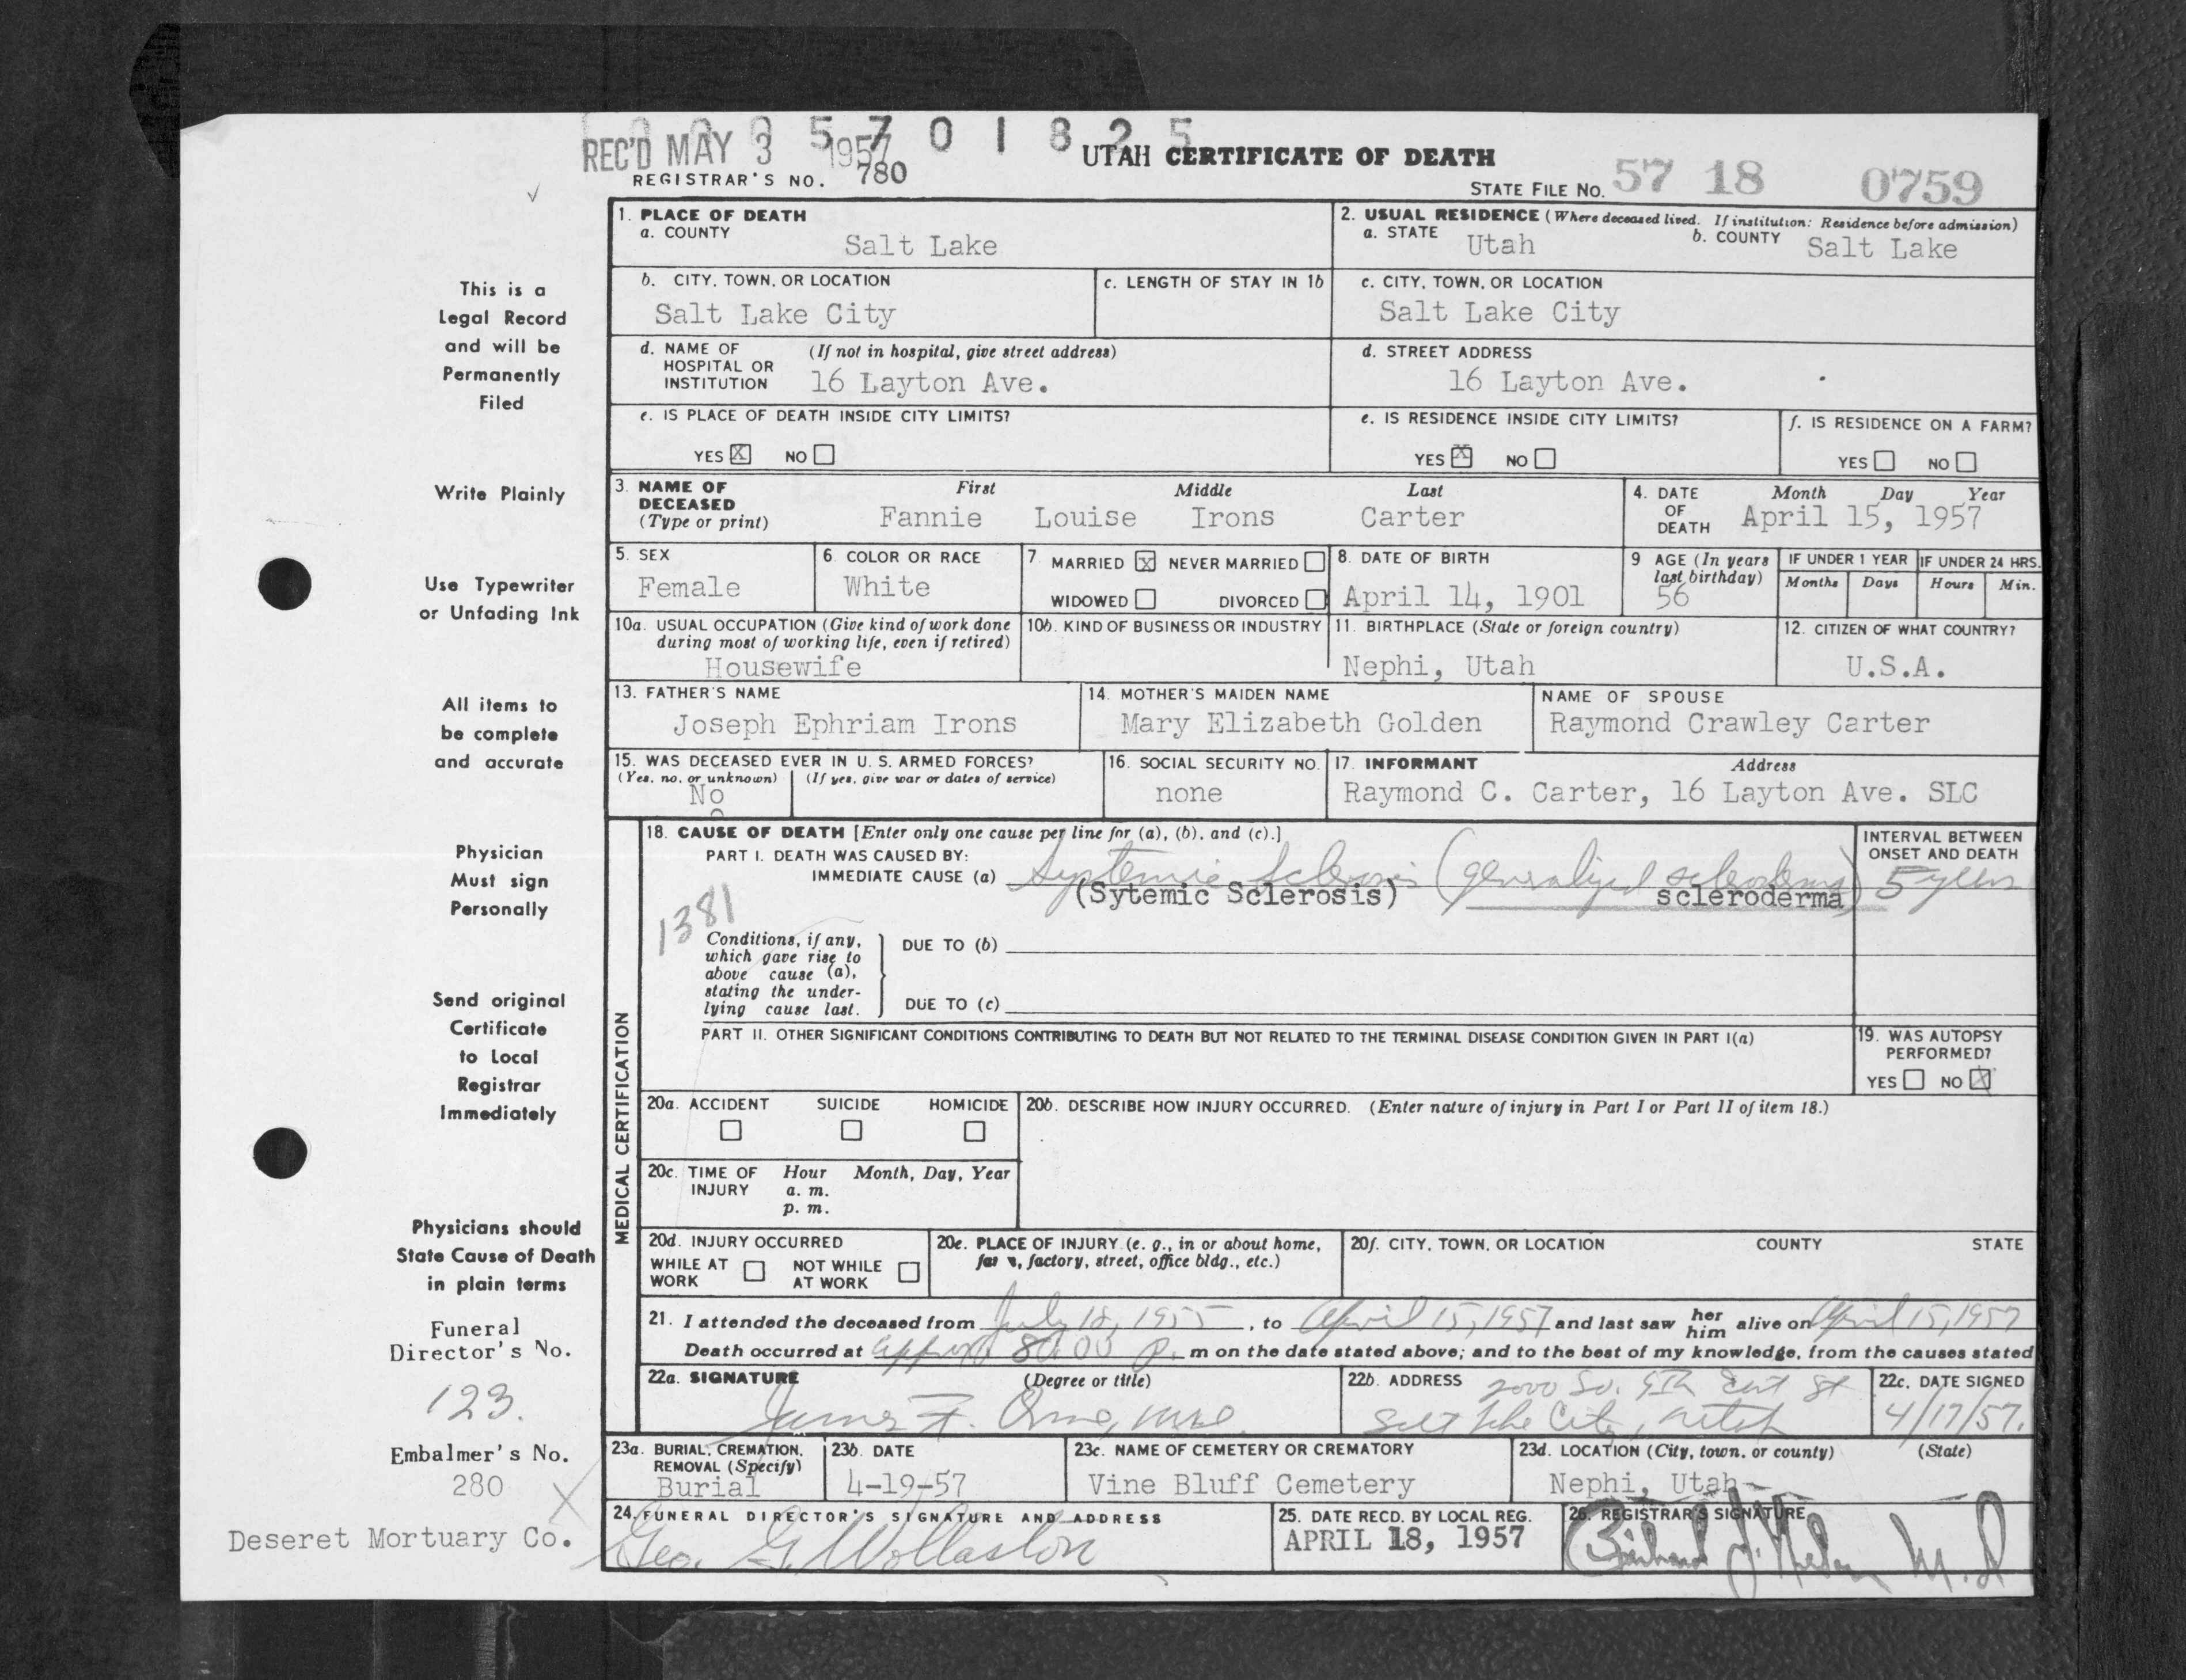 5 7 0 1 8 2 5
REC'D MAY 3 1957
UTAH CERTIFICATE OF DEATH
REGISTRAR'S NO. 780
STATE FILE NO. 57 18 0759
This is a
Legal Record
and will be
Permanently
Filed
Write Plainly
Use Typewriter
or Unfading Ink
All items to
be complete
and accurate
Physician
Must sign
Personally
Send original
Certificate
to Local
Registrar
Immediately
Physicians should
State Cause of Death
in plain terms
Funeral
Director's No.
123.
Embalmer's No.
280
Deseret Mortuary Co.
1. PLACE OF DEATH
a. COUNTY
Salt Lake
2. USUAL RESIDENCE (Where deceased lived. If institution: Residence before admission)
a. STATE Utah b. COUNTY Salt Lake
b. CITY, TOWN, OR LOCATION
Salt Lake City
c. LENGTH OF STAY IN 1b
c. CITY, TOWN, OR LOCATION
Salt Lake City
d. NAME OF (If not in hospital, give street address)
HOSPITAL OR
INSTITUTION 16 Layton Ave.
d. STREET ADDRESS
16 Layton Ave.
e. IS PLACE OF DEATH INSIDE CITY LIMITS?
YES X NO
e. IS RESIDENCE INSIDE CITY LIMITS?
YES X NO
f. IS RESIDENCE ON A FARM?
YES NO
3. NAME OF First Middle Last
DECEASED
(Type or print) Fannie Louise Irons Carter
4. DATE Month Day Year
OF
DEATH April 15, 1957
5. SEX
Female
6. COLOR OR RACE
White
7. MARRIED X NEVER MARRIED
WIDOWED DIVORCED
8. DATE OF BIRTH
April 14, 1901
9 AGE (In years
last birthday)
56
IF UNDER 1 YEAR
Months Days
IF UNDER 24 HRS.
Hours Min.
10a. USUAL OCCUPATION (Give kind of work done
during most of working life, even if retired)
Housewife
10b. KIND OF BUSINESS OR INDUSTRY
11. BIRTHPLACE (State or foreign country)
Nephi, Utah
12. CITIZEN OF WHAT COUNTRY?
U.S.A.
13. FATHER'S NAME
Joseph Ephriam Irons
14. MOTHER'S MAIDEN NAME
Mary Elizabeth Golden
NAME OF SPOUSE
Raymond Crawley Carter
15. WAS DECEASED EVER IN U. S. ARMED FORCES?
(Yes, no, or unknown) (If yes, give war or dates of service)
No
16. SOCIAL SECURITY NO.
none
17. INFORMANT Address
Raymond C. Carter, 16 Layton Ave. SLC
MEDICAL CERTIFICATION
18. CAUSE OF DEATH [Enter only one cause per line for (a), (b), and (c).]
PART I. DEATH WAS CAUSED BY:
IMMEDIATE CAUSE (a) Systemic Sclerosis (generalized scleroderma)
(Sytemic Sclerosis) scleroderma
INTERVAL BETWEEN
ONSET AND DEATH
5 years
1381
Conditions, if any,
which gave rise to
above cause (a),
stating the under-
lying cause last.
DUE TO (b)
DUE TO (c)
PART II. OTHER SIGNIFICANT CONDITIONS CONTRIBUTING TO DEATH BUT NOT RELATED TO THE TERMINAL DISEASE CONDITION GIVEN IN PART I(a)
19. WAS AUTOPSY
PERFORMED?
YES NO X
20a. ACCIDENT SUICIDE HOMICIDE
20b. DESCRIBE HOW INJURY OCCURRED. (Enter nature of injury in Part I or Part II of item 18.)
20c. TIME OF Hour Month, Day, Year
INJURY a. m.
p. m.
20d. INJURY OCCURRED
WHILE AT NOT WHILE
WORK AT WORK
20e. PLACE OF INJURY (e. g., in or about home,
factory, street, office bldg., etc.)
20f. CITY, TOWN, OR LOCATION COUNTY STATE
21. I attended the deceased from July 18, 1955, to April 15, 1957 and last saw her him alive on April 15, 1957
Death occurred at approx 8:00 P. m on the date stated above; and to the best of my knowledge, from the causes stated
22a. SIGNATURE (Degree or title)
James F. Orme, M.D.
22b. ADDRESS 2000 So. 9th East St
Salt Lake City, Utah
22c. DATE SIGNED
4/17/57.
23a. BURIAL, CREMATION,
REMOVAL (Specify)
Burial
23b. DATE
4-19-57
23c. NAME OF CEMETERY OR CREMATORY
Vine Bluff Cemetery
23d. LOCATION (City, town, or county) (State)
Nephi, Utah
24. FUNERAL DIRECTOR'S SIGNATURE AND ADDRESS
Geo. G. Wollaston
25. DATE RECD. BY LOCAL REG.
APRIL 18, 1957
26. REGISTRAR'S SIGNATURE
M.D